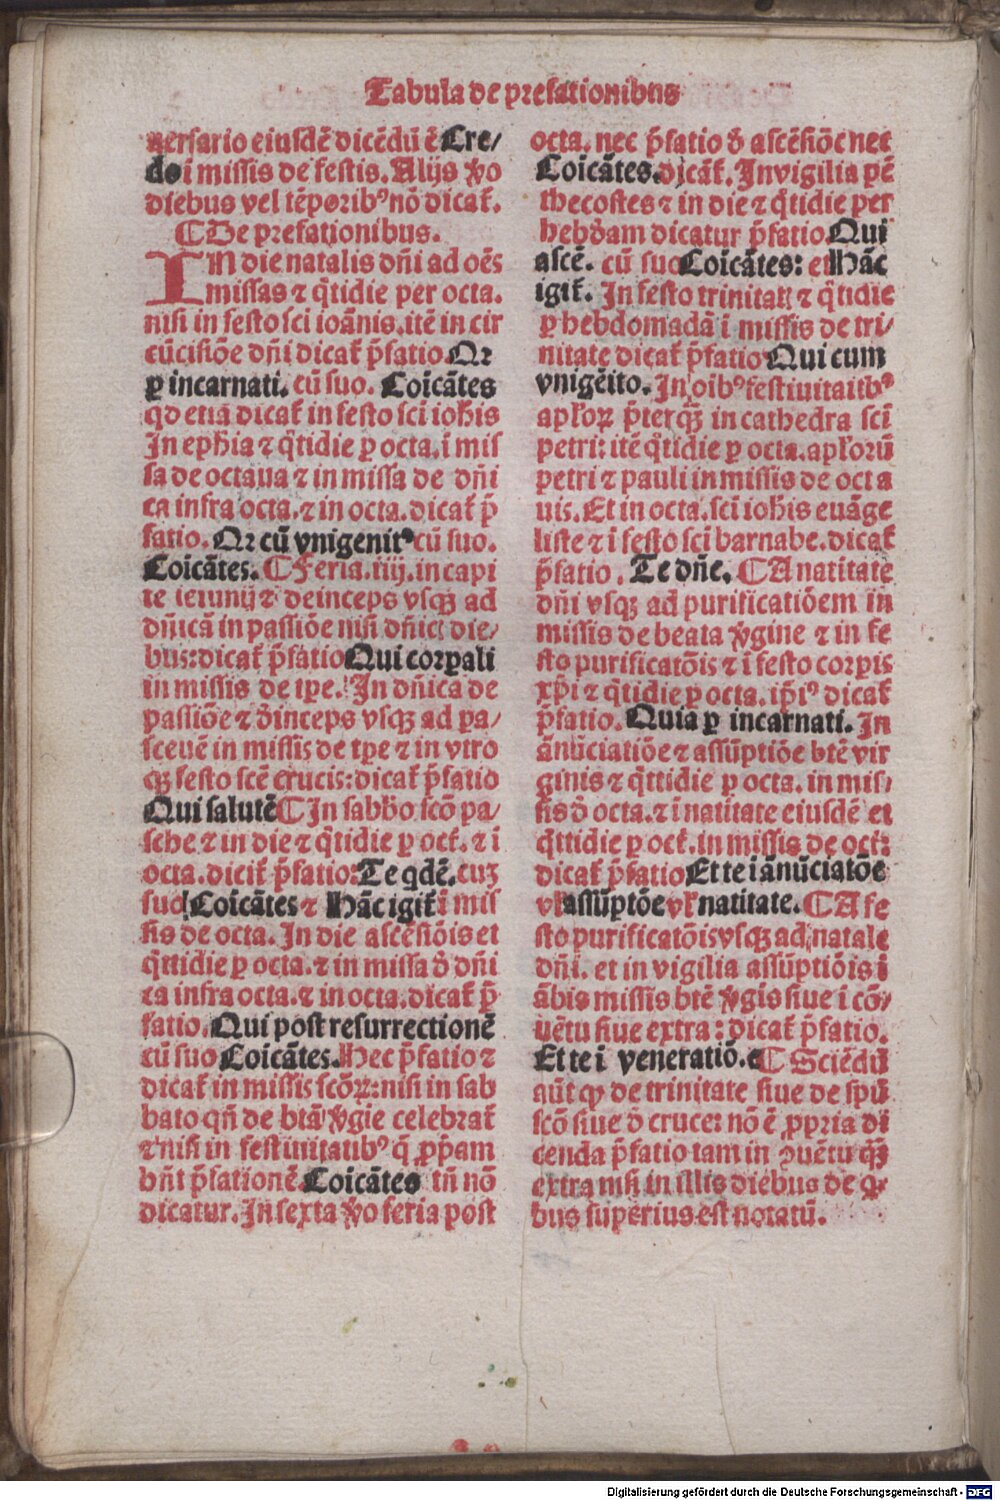 Tabula de prefationibus
uersario eiusdē dicēdū ē Cre/
do i missis de festis. Alijs ꝟo
diebus vel tēporibꝰ nō dicat᷑.
¶ De prefationibus.
IN die natalis dn̄i ad oēs
missas ⁊ q̄tidie per octa.
nisi in festo sci ioānis. itē in cir
cūcisiōe dn̄i dicat᷑ p̄fatio. Qꝛ
ꝑ incarnati. cū suo. Coīcātes
qd etiā dicat᷑ in festo sci ioh̄is
In eph̄ia ⁊ q̄tidie ꝑ octa. ī mis
sa de octaua ⁊ in missa de dn̄i
ca infra octa. ⁊ in octa. dicat᷑ p̄
fatio. Qꝛ cū vnigenitꝰ cū suo.
Coīcātes. ¶ Feria. iiij. in capi
te ieiunij ⁊ deinceps vsqꝫ ad
dn̄icā in passiōe nisi dn̄ic die/
bus: dicat᷑ p̄fatio Qui corꝑali
in missis de tp̄e. In dn̄ica de
passiōe ⁊ d̄inceps vsqꝫ ad pa/
sceuē in missis de tp̄e ⁊ in vtro
qꝫ festo scē crucis: dicat᷑ p̄fatio
Qui salutē ¶ In sabb̄o scō pa/
sche ⁊ in die ⁊ q̄tidie ꝑ oct. ⁊ ī
octa. dicit᷑ p̄fatio: Te qdē. cuꝫ
suo Coīcātes ⁊ Hāc igit᷑ ī mis
sis de octa. In die ascēsiōis et
q̄ttidie ꝑ octa. ⁊ in missa d̄ dn̄i
ca infra octa. ⁊ in octa. dicat᷑ p̄
fatio. Qui post resurrectionē
cū suo Coīcātes. Hec p̄fatio ⁊
dicat᷑ in missis scōꝝ: nisi in sab
bato qn̄ de btā ꝟgīe celebrat᷑
⁊ nisi in festiuitatibꝰ q̄ ꝓp̄am
hn̄t p̄fationē Coīcātes tn̄ nō
dicatur. In sexta ꝟo feria post
octa. nec p̄fatio d̄ ascēsiōe nec
Coīcātes. dicāt᷑. In vigilia pē
thecostes ⁊ in die ⁊ q̄tidie per
hebd̄am dicatur p̄fatio. Qui
ascē. cū suo Coīcātes: et Hāc
igit᷑. In festo trinitat ⁊ q̄tidie
ꝑ hebdomadā ī missis de tri/
nitate dicat᷑ p̄fatio Qui cum
vnigēito. In oībꝰ festiuitatibꝰ
apl̄oꝝ p̄terqꝫ in cathedra sci
petri: itē q̄tidie ꝑ octa. apl̄orū
petri ⁊ pauli in missis de octa
uis. Et in octa. sci ioh̄is euāge
liste ⁊ ī festo sci barnabe. dicat᷑
p̄fatio. Te dn̄e. ¶ A natitate
dn̄i vsqꝫ ad purificatiōem in
missis de beata ꝟgine ⁊ in fe
sto purificatōis ⁊ ī festo corꝑis
xp̄i ⁊ q̄tidie ꝑ octa. ip̄iꝰ dicat᷑
p̄fatio. Quia ꝑ incarnati. In
ānūciatiōe ⁊ assūptiōe btē vir
ginis ⁊ q̄ttidie ꝑ octa. in mis/
sis d̄ octa. ⁊ ī natitate eiusdē et
q̄ttidie ꝑ oct. in missis de oct:
dicat᷑ p̄fatio Et te ī ānūciatōe
vl̄ assūptōe vl̄ natitate. ¶ A fe
sto purificatōis vsqꝫ ad natale
dn̄i. et in vigilia assūptiōis ī
ābis missis btē ꝟgīs siue ī cō/
uētu siue extra: dicat᷑ p̄fatio.
Et te ī veneratiō. ¶ Sciēdū
aūt qꝙ de trinitate siue de spū
scō siue d̄ cruce: nō ē ꝓpria di
cenda p̄fatio tam in ꝯuētu qꝫ̄
extra nisi in illis diebus de q/
bus superius est notatū.
Digitalisierung gefördert durch die Deutsche Forschungsgemeinschaft - DFG